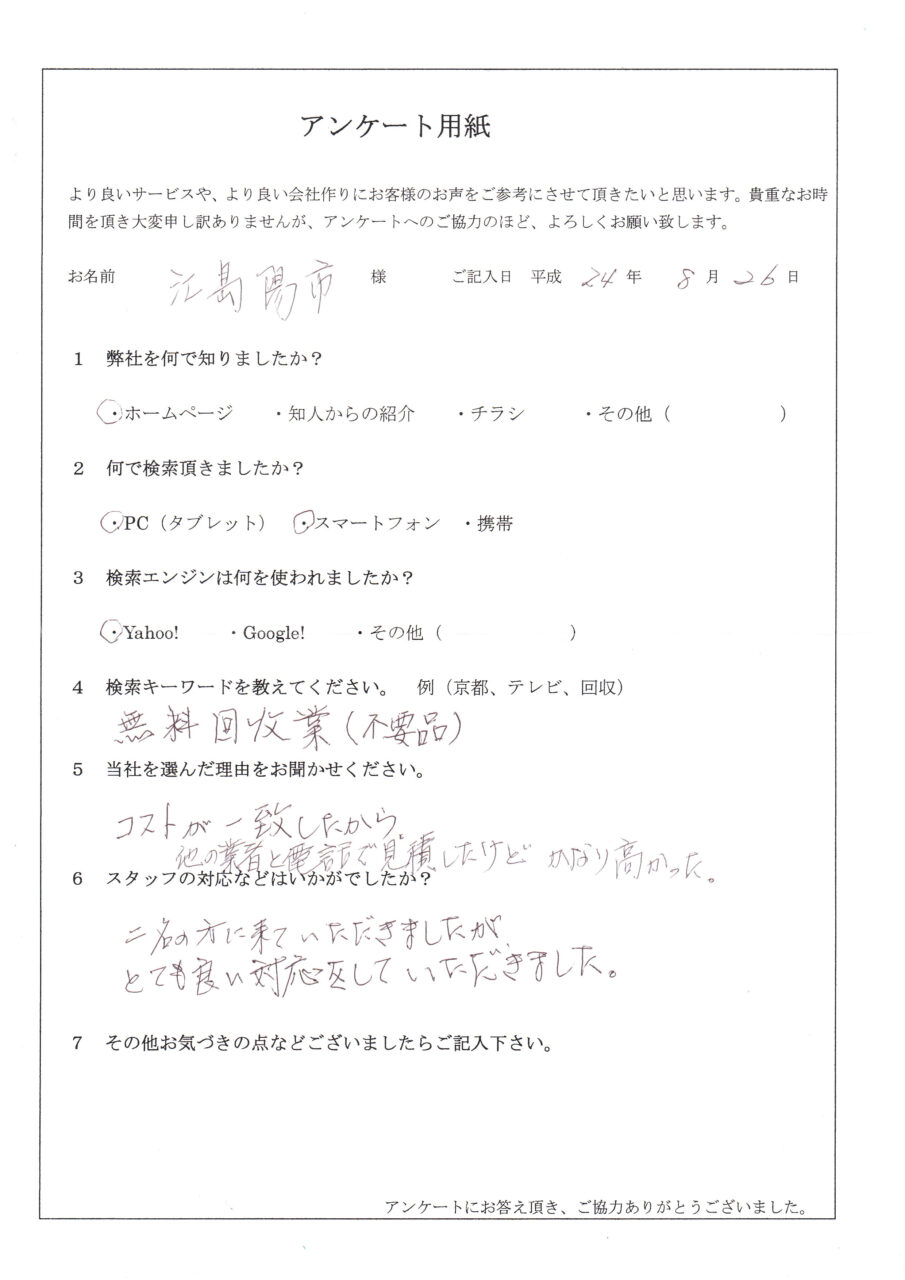 アンケート用紙
より良いサービスや、より良い会社作りにお客様のお声をご参考にさせて頂きたいと思います。貴重なお時
間を頂き大変申し訳ありませんが、アンケートへのご協力のほど、よろしくお願い致します。
お名前 江島陽市 様 ご記入日 平成 24 年 8 月 26 日
1 弊社を何で知りましたか？
・ホームページ ・知人からの紹介 ・チラシ ・その他（ ）
2 何で検索頂きましたか？
・PC（タブレット） ・スマートフォン ・携帯
3 検索エンジンは何を使われましたか？
・Yahoo! ・Google! ・その他（ ）
4 検索キーワードを教えてください。 例（京都、テレビ、回収）
無料回収業(不要品)
5 当社を選んだ理由をお聞かせください。
コストが一致したから。
他の業者と電話で見積したけど かなり高かった。
6 スタッフの対応などはいかがでしたか？
二名の方に来ていただきましたが、
とても良い対応をしていただきました。
7 その他お気づきの点などございましたらご記入下さい。
アンケートにお答え頂き、ご協力ありがとうございました。